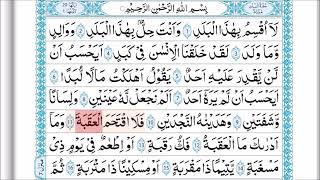 بِسْمِ اللّٰهِ الرَّحْمٰنِ الرَّحِيْمِ
لَآ اُقْسِمُ بِهٰذَا الْبَلَدِ ۝١ وَاَنْتَ حِلٌّۢ بِهٰذَا الْبَلَدِ ۝٢ وَوَالِدٍ
وَّمَا وَلَدَ ۝٣ لَقَدْ خَلَقْنَا الْاِنْسَانَ فِيْ كَبَدٍ ۝٤ اَيَحْسَبُ اَنْ
لَّنْ يَّقْدِرَ عَلَيْهِ اَحَدٌ ۝٥ يَقُوْلُ اَهْلَكْتُ مَالًا لُّبَدًا ۝٦
اَيَحْسَبُ اَنْ لَّمْ يَرَهٗٓ اَحَدٌ ۝٧ اَلَمْ نَجْعَلْ لَّهٗ عَيْنَيْنِ ۝٨ وَلِسَانًا
وَّشَفَتَيْنِ ۝٩ وَهَدَيْنٰهُ النَّجْدَيْنِ ۝١٠ فَلَا اقْتَحَمَ الْعَقَبَةَ ۝١١ وَمَآ
اَدْرٰىكَ مَا الْعَقَبَةُ ۝١٢ فَكُّ رَقَبَةٍ ۝١٣ اَوْ اِطْعَامٌ فِيْ يَوْمٍ ذِيْ
مَسْغَبَةٍ ۝١٤ يَّتِيْمًا ذَا مَقْرَبَةٍ ۝١٥ اَوْ مِسْكِيْنًا ذَا مَتْرَبَةٍ ۝١٦ ثُمَّ